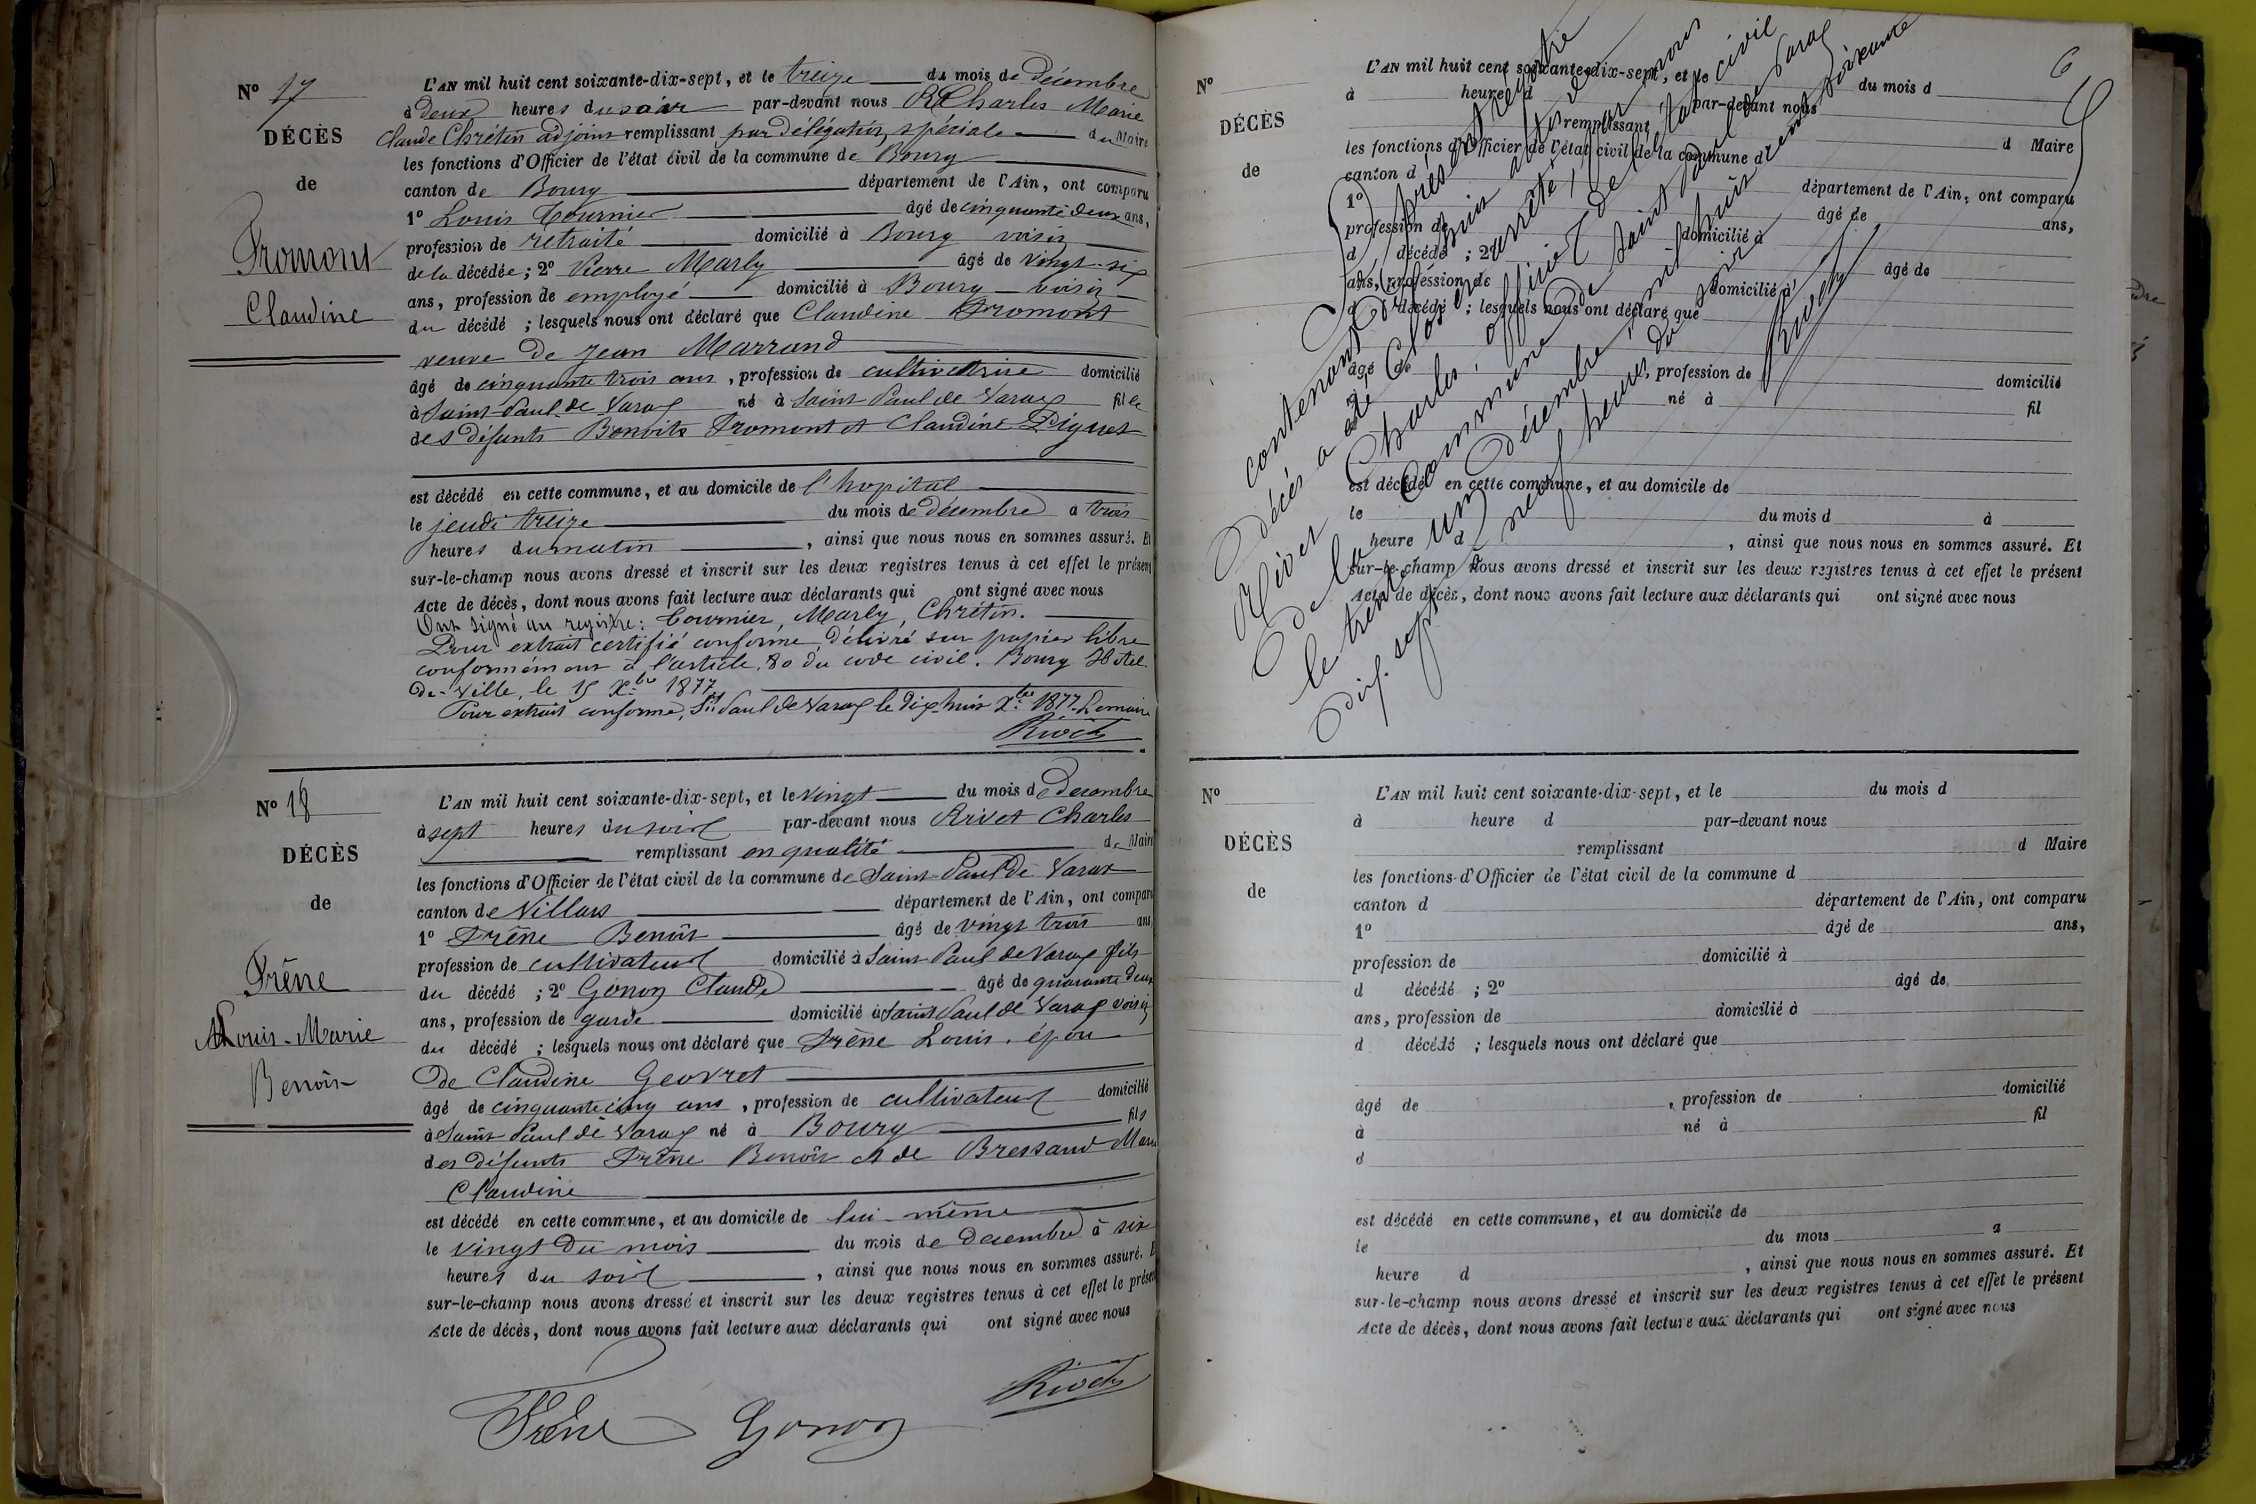 N° 17
DÉCÈS
de
Fromont
Claudine
L'AN mil huit cent soixante-dix-sept, et le treize du mois de Décembre
à deux heures du soir par-devant nous Charles Marie
Claude Chrétin adjoint remplissant par délégation spéciale du Maire
les fonctions d'Officier de l'état civil de la commune de Bourg
canton de Bourg département de l'Ain, ont comparu
1° Louis Tournier âgé de cinquante deux ans,
profession de retraité domicilié à Bourg voisin
de la décédée ; 2° Pierre Marly âgé de vingt-six
ans, profession de employé domicilié à Bourg voisin
du décédé ; lesquels nous ont déclaré que Claudine Fromont
veuve de Jean Marrand
âgé de cinquante trois ans, profession de cultivatrice domicilié
à Saint Paul de Varax né à Saint Paul de Varax fille
des défunts Benoits Fromont et Claudine Piguet
est décédé en cette commune, et au domicile de l'hopital
le jeudi treize du mois de décembre à trois
heures du matin, ainsi que nous nous en sommes assuré. Et
sur-le-champ nous avons dressé et inscrit sur les deux registres tenus à cet effet le présent
Acte de décès, dont nous avons fait lecture aux déclarants qui ont signé avec nous
Ont signé au registre : Tournier, Marly, Chrétin.
Pour extrait certifié conforme, délivré sur papier libre
conformément à l'article 80 du code civil. Bourg Hôtel
de-Ville, le 15 Xbre 1877
Pour extrait conforme, St Paul de Varax le dix huit Xbre 1877. Le maire
Rivet
N° 18
DÉCÈS
de
Frêne
Louis-Marie
Benoit
L'AN mil huit cent soixante-dix-sept, et le vingt du mois de Decembre
à sept heures du soir par-devant nous Rivet Charles
remplissant en qualité de Maire
les fonctions d'Officier de l'état civil de la commune de Saint Paul de Varax
canton de Villars département de l'Ain, ont comparu
1° Frêne Benoit âgé de vingt trois ans
profession de cultivateur domicilié à Saint Paul de Varax fils
du décédé ; 2° Gonon Claude âgé de quarante deux
ans, profession de garde domicilié à Saint Paul de Varax voisin
du décédé ; lesquels nous ont déclaré que Frène Louis, époux
de Claudine Geovret
âgé de cinquante cinq ans, profession de cultivateur domicilié
à Saint Paul de Varax né à Bourg fils
des défunts Frêne Benoit et de Bressand Marie
Claudine
est décédé en cette commune, et au domicile de lui même
le vingt du mois du mois de decembre à six
heures du soir, ainsi que nous nous en sommes assuré. Et
sur-le-champ nous avons dressé et inscrit sur les deux registres tenus à cet effet le présent
Acte de décès, dont nous avons fait lecture aux déclarants qui ont signé avec nous
Frêne Gonon Rivet
6
N°
DÉCÈS
de
L'AN mil huit cent soixante-dix-sept, et le du mois d
à heure d par-devant nous
remplissant d Maire
les fonctions d'Officier de l'état civil de la commune d
canton d département de l'Ain, ont comparu
1° âgé de ans,
profession de domicilié à
d décédé ; 2° âgé de
ans, profession de domicilié à
d décédé ; lesquels nous ont déclaré que
âgé de, profession de domicilié
à né à fil
d
est décédé en cette commune, et au domicile de
le du mois d à
heure d, ainsi que nous nous en sommes assuré. Et
sur-le-champ nous avons dressé et inscrit sur les deux registres tenus à cet effet le présent
Acte de décès, dont nous avons fait lecture aux déclarants qui ont signé avec nous
présent registre
contenant dix huit actes de
décès a été clos et arrêté, par nous
Rivet Charles, officier de l'état civil
de la Commune de Saint Paul de Varax
le trente un Décembre mil huit cent soixante
dix. sept à neuf heures du soir
Rivet
N°
DÉCÈS
de
L'AN mil huit cent soixante-dix-sept, et le du mois d
à heure d par-devant nous
remplissant d Maire
les fonctions d'Officier de l'état civil de la commune d
canton d département de l'Ain, ont comparu
1° âgé de ans,
profession de domicilié à
d décédé ; 2° âgé de
ans, profession de domicilié à
d décédé ; lesquels nous ont déclaré que
âgé de, profession de domicilié
à né à fil
d
est décédé en cette commune, et au domicile de
le du mois à
heure d, ainsi que nous nous en sommes assuré. Et
sur-le-champ nous avons dressé et inscrit sur les deux registres tenus à cet effet le présent
Acte de décès, dont nous avons fait lecture aux déclarants qui ont signé avec nous